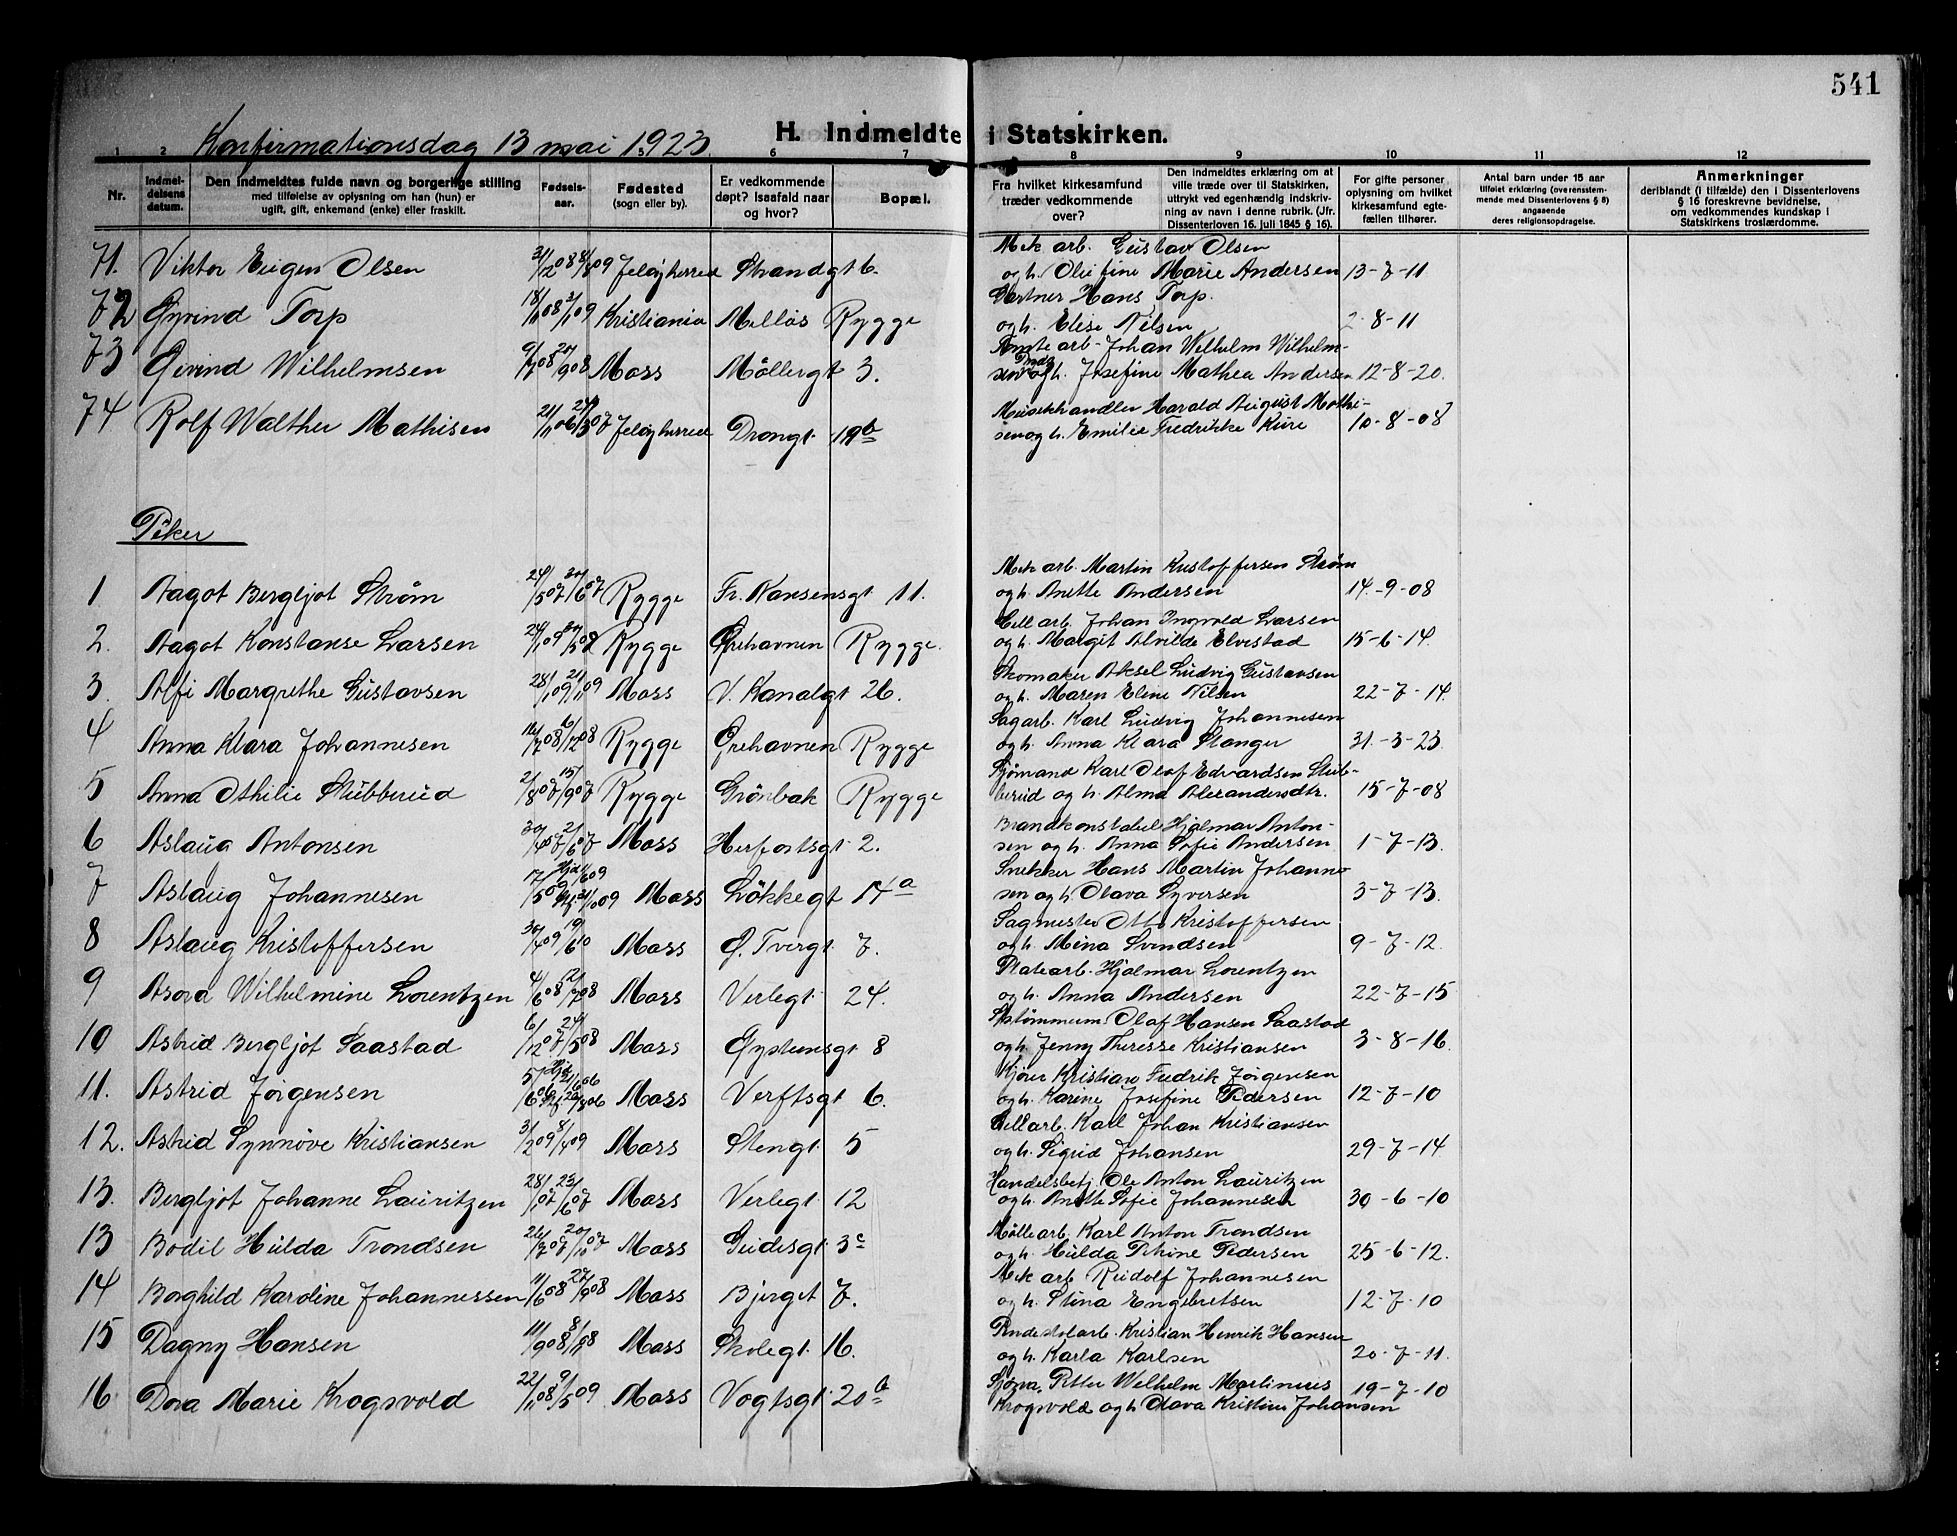 541
Konfirmationsdag 13 mai 1923.
H. Indmeldte i Statskirken.
1 2 5 6 7 8 9 10 11 12
Nr.
Indmel-
delsens
datum.
Den indmeldtes fulde navn og borgerlige stilling
med tilføielse av oplysning om han (hun) er
ugift, gift, enkemand (enke) eller fraskilt.
Fødsels-
aar.
Fødested
(sogn eller by).
Er vedkommende
døpt? Isaafald naar
og hvor?
Bopæl.
Fra hvilket kirkesamfund
træder vedkommende
over?
Den indmeldtes erklæring om at
ville træde over til Statskirken,
uttrykt ved egenhændig indskriv-
ning av navn i denne rubrik. (Jfr.
Dissenterloven 16. juli 1845 § 16).
For gifte personer
oplysning om hvilket
kirkesamfund egte-
fællen tilhører.
Antal barn under 15 aar
tilføiet erklæring (overensstem-
mende med Dissenterlovens § 8)
angaaende
deres religionsopdragelse.
Anmerkninger
deriblandt (i tilfælde) den i Dissenterlovens
§ 16 foreskrevne bevidnelse,
om vedkommendes kundskap i
Statskirkens troslærdomme.
71. Viktor Eugen Olsen 31/12 08 8/8 09 Jeløy herred Strandgt 6. Mek arb. Gustav Olsen
og h. Olefine Marie Andersen 13-7-11
72 Øyvind Torp 18/11 08 3/1 09 Kristiania Melløs Rygge Gartner Hans Torp.
og h. Elise Nilsen 2-8-11
73 Øivind Wilhelmsen 9/7 08 20/9 08 Moss Möllergt 3. arb. Johan Wilhelm Wilhelm-
sen og h. Josefine Mathea Andersen 12-8-20.
74 Rolf Walther Mathisen 21/11 06 Jeløy herred Drongt. 19b Musikhandler Harald August Mathi-
sen og h. Emilie Fredrikke Kure 10-8-08
Piker
1. Aagot Bergljot Strøm 24/5 07 30/6 07 Rygge Fr. Nansensgt 11. Mek arb. Martin Kristoffersen Strøm
og h. Anette Andersen 14-9-08
2. Aagot Konstanse Larsen Rygge Ørehavnen Rygge. Cell arb. Johan Ingvold Larsen
og h. Margit Alvilde Elvestad 15-6-14.
3. Alfi Margrethe Gustavsen 28/1 09 21/11 09 Moss V. Kanalgt 26. Skomaker Aksel Ludvig Gustavsen
og h. Maren Eline Nilsen 22-7-14.
4 Anna Klara Johannesen 12/7 08 6/12 08 Rygge Ørehavnen Rygge Sagarb. Karl Ludvig Johannesen
og h. Anna Klara Slanger 31-3-23.
5 Anna Othilie Stubberud 2/8 07 15/9 07 Rygge Grönbak Rygge Sjömand Karl Olaf Edvardsen Stub-
berud og h. Alma Alexandersdtr. 15-7-08
6 Aslaug Antonsen Moss Herfortsgt 2. Brandkonstabel Hjalmar Anton-
sen og h. Anna Sofie Andersen 1-7-13.
7 Aslaug Johannesen 17/5 09 Moss Løkkegt 14a Snekker Hans Martin Johanne-
sen og h. Olava Syversen 3-7-13.
8 Aslaug Kristoffersen 30/7 09 19/6 10 Moss Ø. Tvergt 7. Sagmester Otto Kristoffersen
og h. Mina Svendsen 9-7-12.
9 Asora Wilhelmine Lorentzen 4/6 08 21/7 08 Moss Verlegt. 24. Platearb. Hjalmar Lorentzen
og h. Anna Andersen 22-7-15
10 Astrid Bergljot Saastad 6/12 07 24/5 08 Moss Øystensgt 8 Olaf Hansen Saastad
og h. Jenny Theresse Kristiansen 3-8-16.
11. Astrid Jørgensen 5/6 06 Moss Verftsgt 6. Kjörer Kristian Fredrik Jørgensen
og h. Karine Josefine Pedersen 12-7-10
12. Astrid Synnöve Kristiansen 3/2 09 8/4 09 Moss Stengt. 5 Cellarb. Karl Johan Kristiansen
og h. Sigrid Johansen 29-7-14
13. Bergljot Johanne Lauritzen 28/1 07 23/6 07 Moss Verlegt. 12 Handelsbetj. Ole Anton Lauritzen
og h. Anette Sofie Johannesen 30-6-10
13 Bodil Hulda Trondsen 26/7 07 20/10 07 Moss Guldesgt. 3c Mölle arb. Karl Anton Trondsen
og h. Hulda Petrine Pedersen 25-6-12.
14 Borghild Karoline Johannessen 11/6 08 27/9 08 Moss Bjerget 7. Mek arb Rudolf Johannesen
og h. Stina Engebretsen 12-7-10
15 Dagny Hansen Moss Skolegt. 16. Kristian Henrik Hansen
og h. Karla Karlsen 20-7-11.
16 Dora Marie Krogsvold 22/11 08 9/5 09 Moss Vogtsgt. 20b Petter Wilhelm Martinius
Krogsvold og h Olava Kristine Johansen 19-7-10